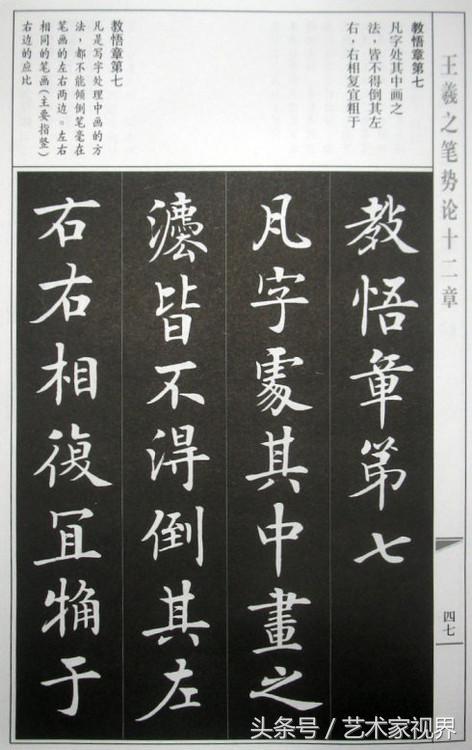 王羲之笔势论十二章
教悟章第七
凡字处其中画之
法，皆不得倒其左
右，右相复宜粗于
教悟章第七
凡是写字处理中画的方
法，都不能倾倒笔毫在
笔画的左右两边。左右
相同的笔画(主要指竖)
右边的应比
教悟章第七
凡字處其中畫之
灋皆不淂倒其左
右右相復冝觕于
四七
头条号／艺术家视界